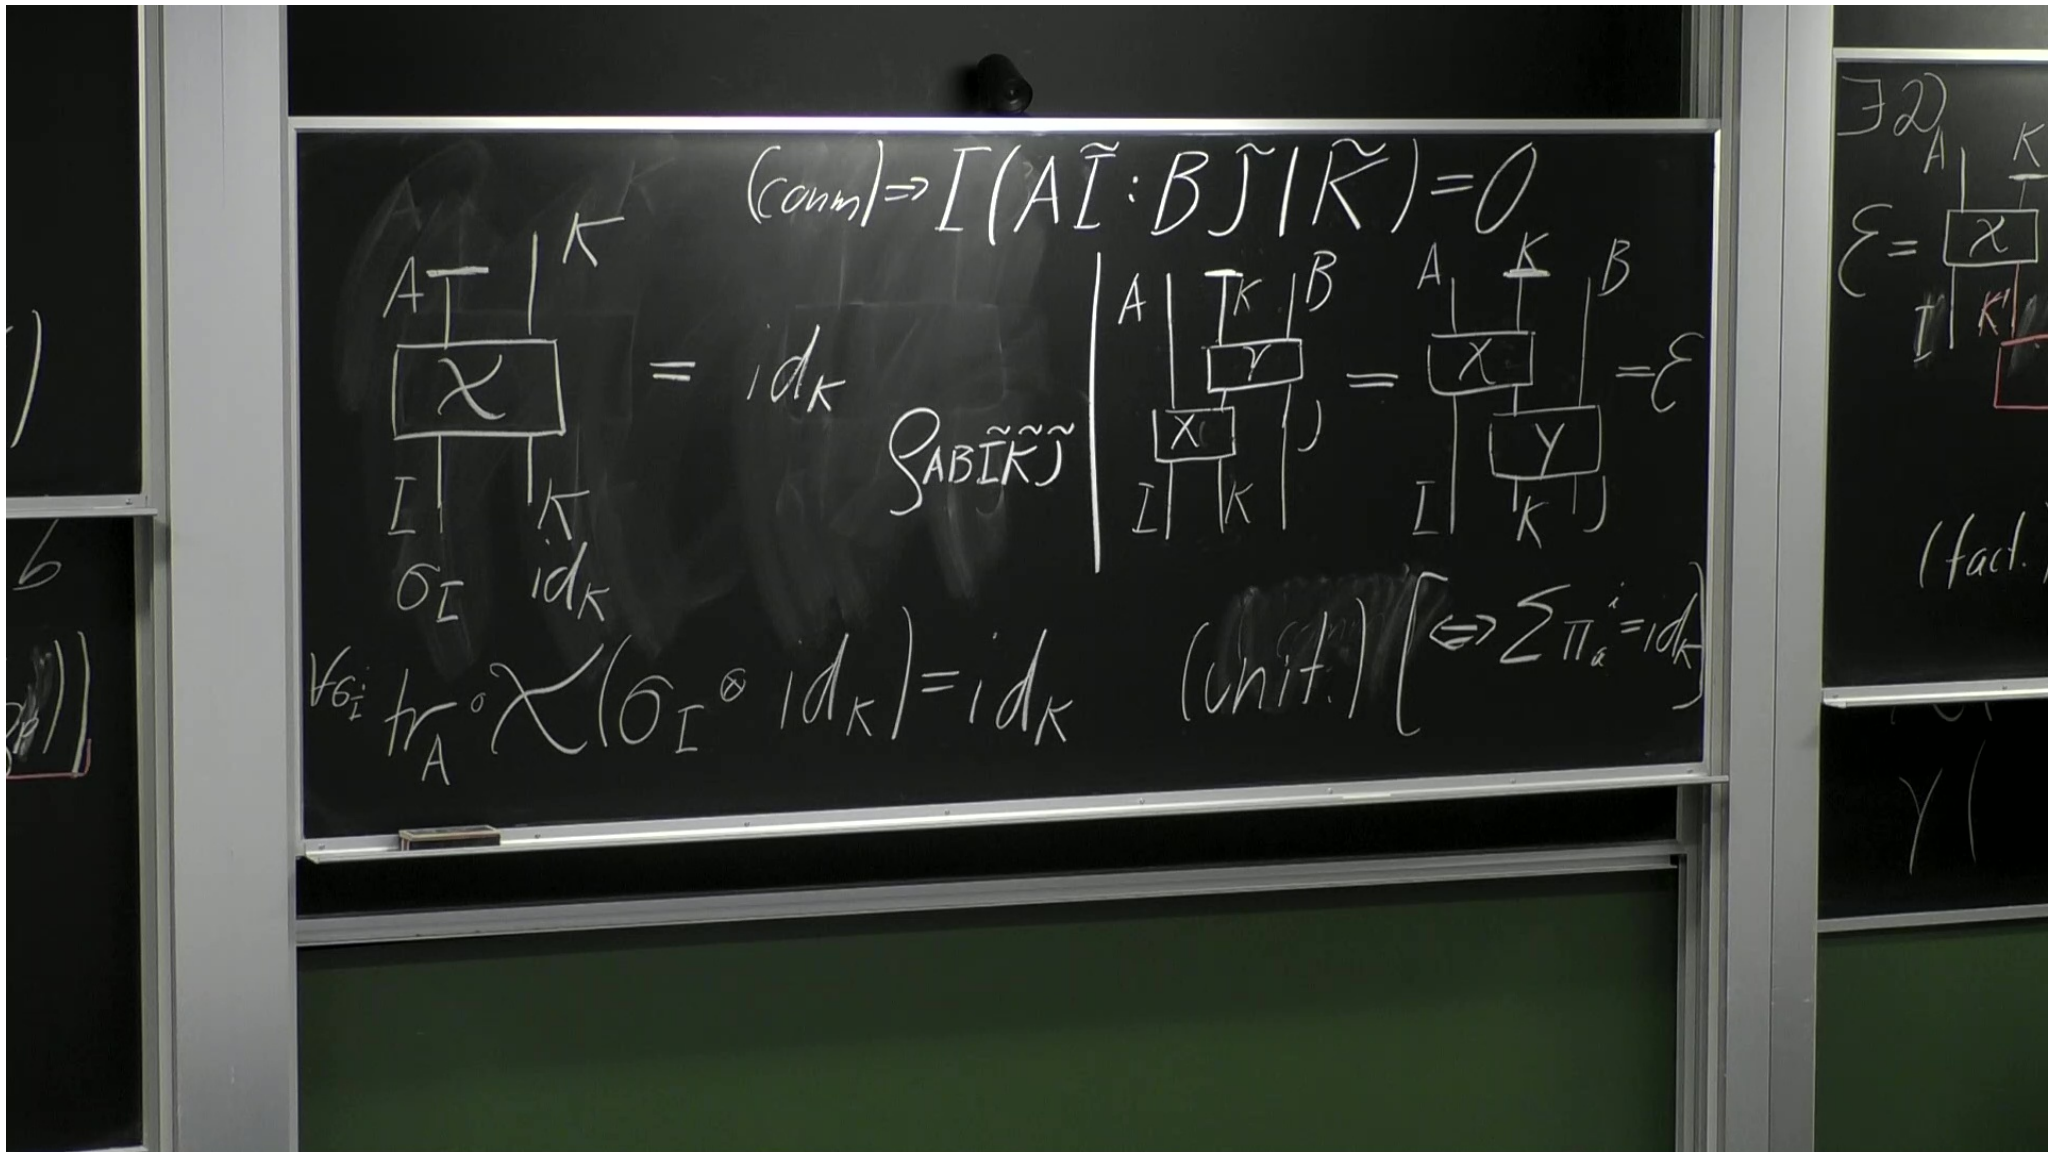 (comm) ⇒ I(AĨ : BJ̃ | K̃) = 0
A K
X = id_K
I K
σ_I id_K
ρ_{ABĨK̃J̃}
A K B
Y
X
J
I K
=
A K B
X
Y
I K J
= ℰ
∀σ_I: tr_A ∘ X(σ_I ⊗ id_K) = id_K (unit.) [⇔ Σ π_a^i = id_K]
∃𝒟
A K
ℰ = X
I K'
(fact.)
γ(
6
))